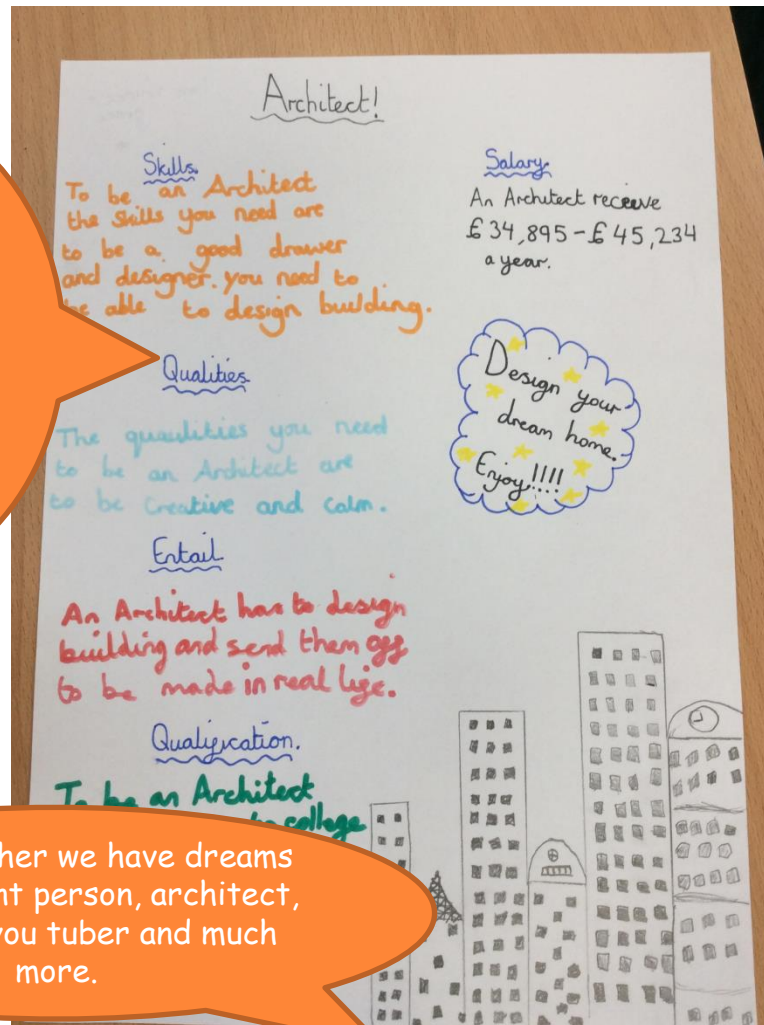 Architect!
Skills
To be an Architect
the skills you need are
to be a good drawer
and designer. you need to
be able to design building.
Qualities
The quaulities you need
to be an Architect are
to be Creative and calm.
Entail
An Architect has to design
building and send them off
to be made in real life.
Qualification.
To be an Architect
college
Salary
An Architect receeve
£34,895-£45,234
a year.
Design your
dream home.
Enjoy!!!!
her we have dreams
nt person, architect,
you tuber and much
more.